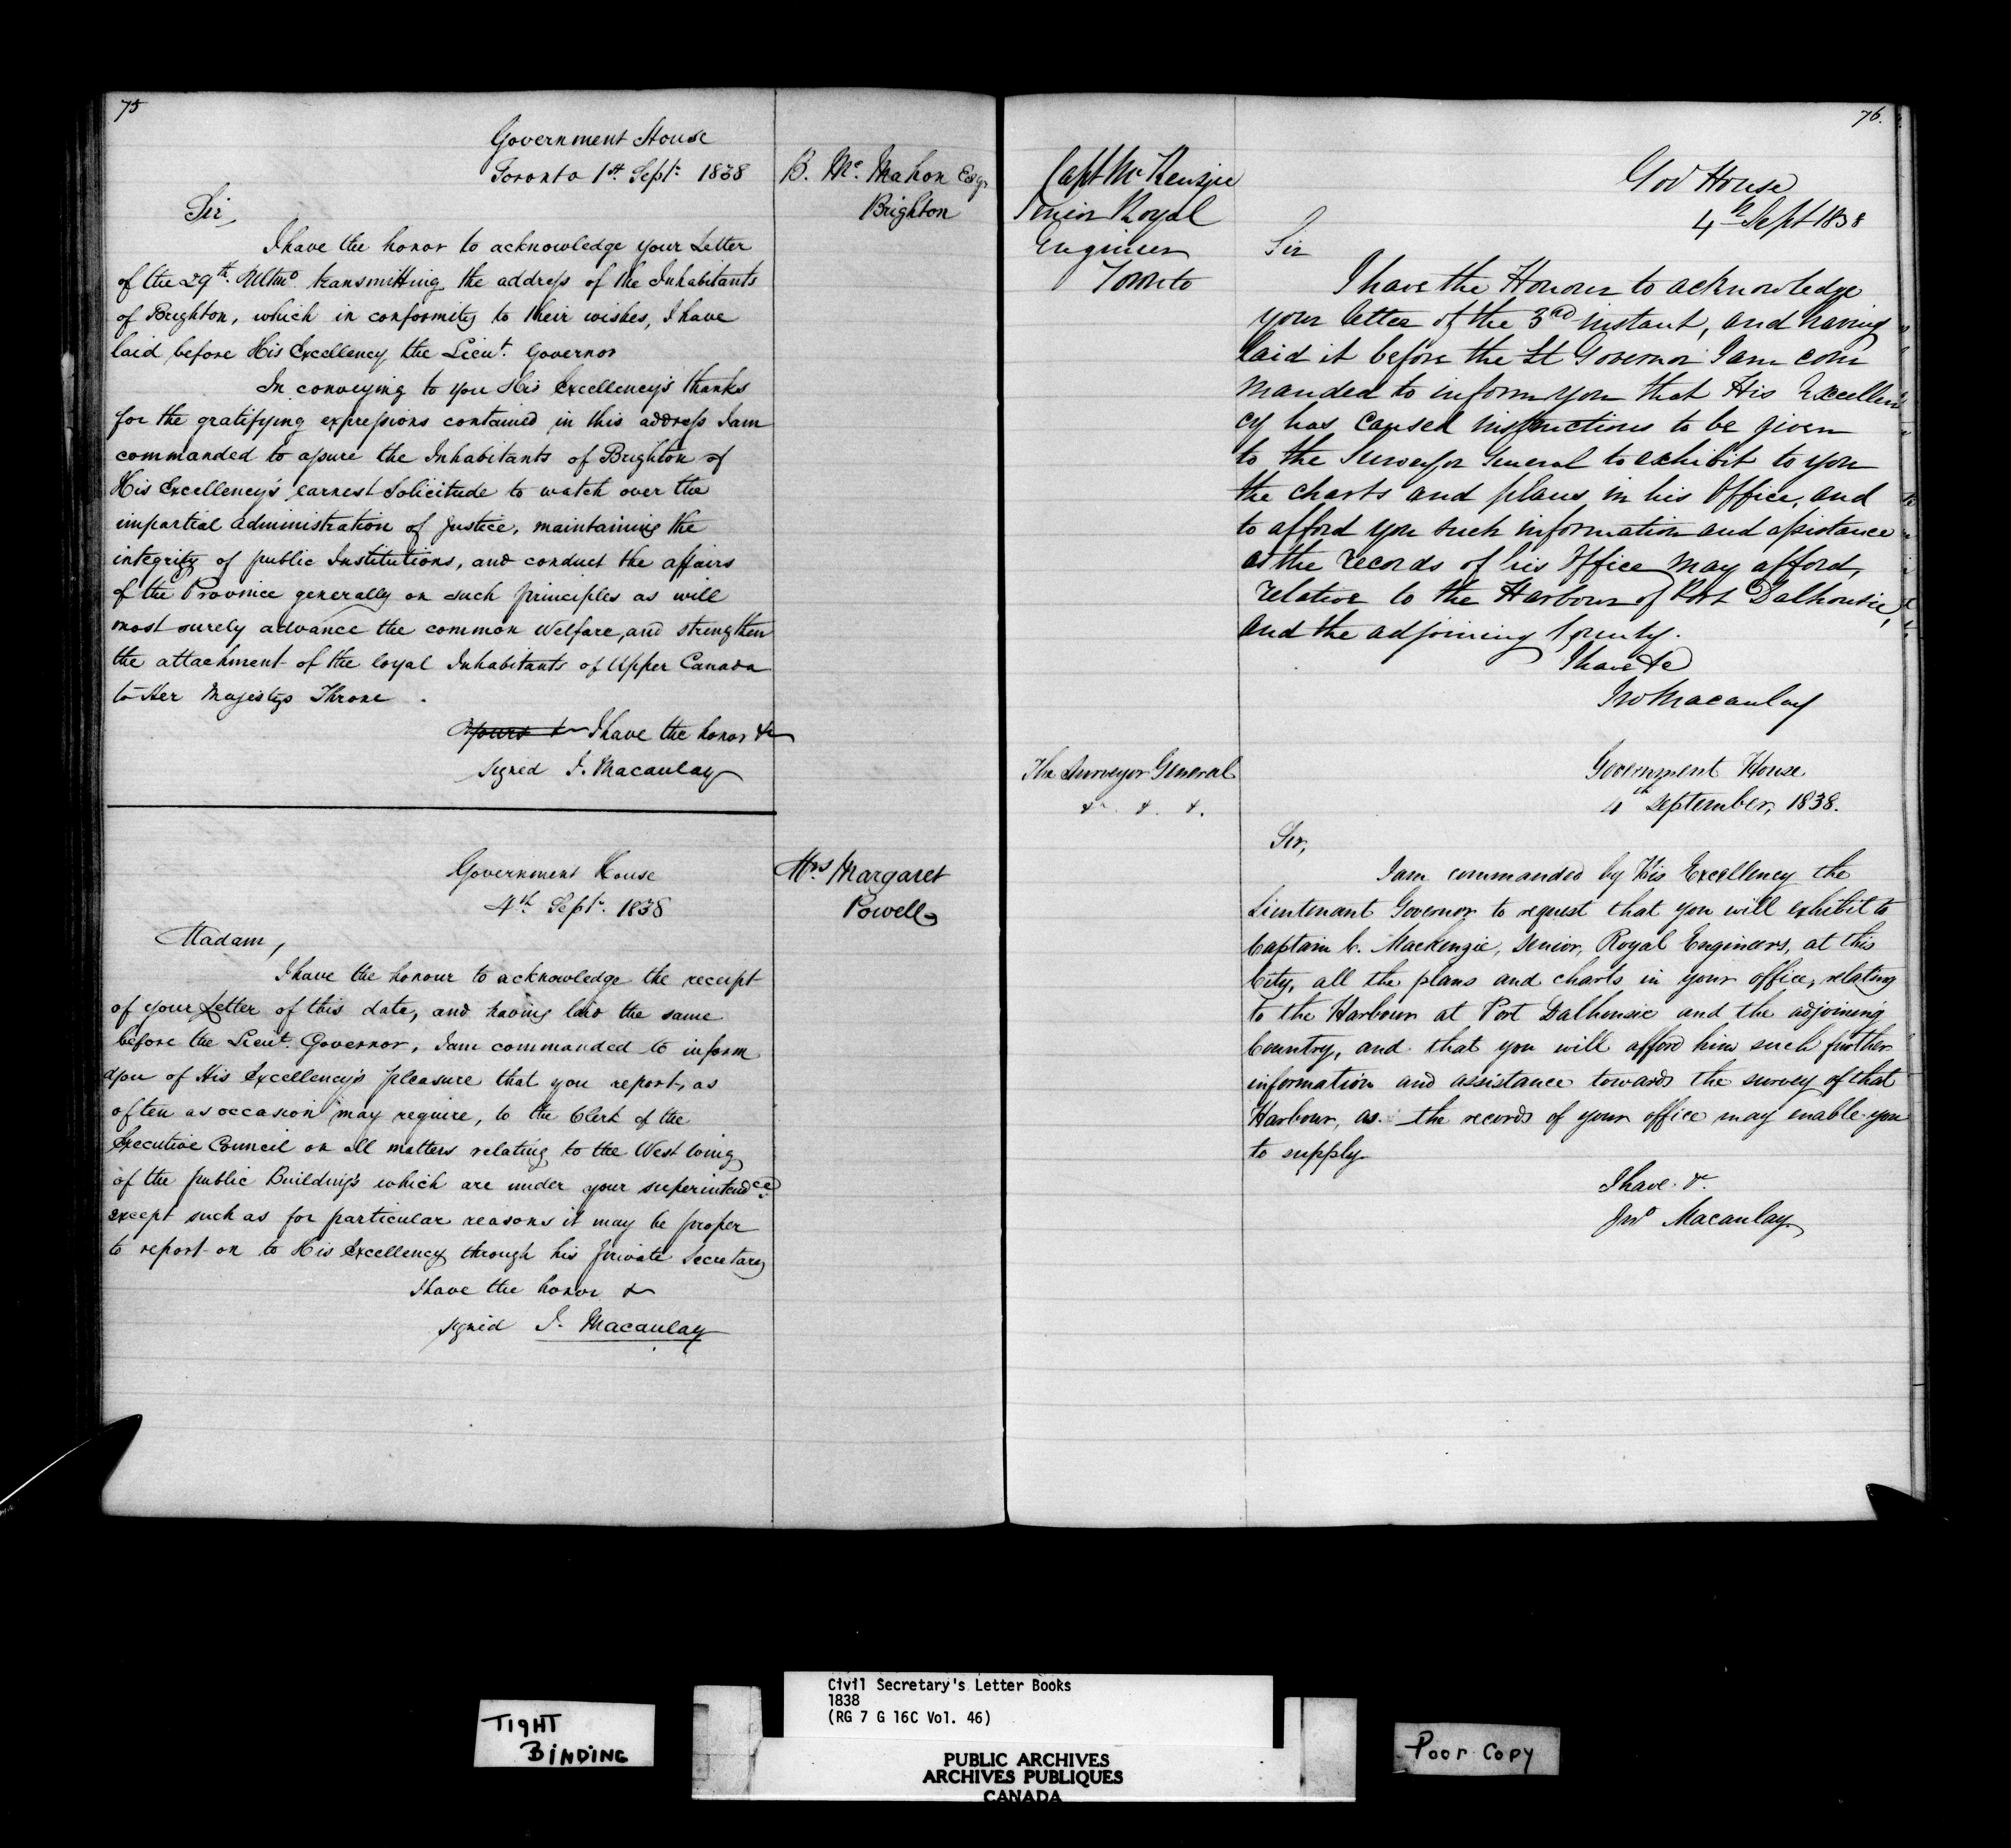 75
Government House
Toronto 1st. Sept: 1838
B. Mc. Mahon Esqr
Brighton
Sir,
I have the honor to acknowledge your Letter
of the 29th. Ultmo. transmitting the address of the Inhabitants
of Brighton, which in conformity to their wishes, I have
laid before His Excellency the Lieut. Governor
In conveying to you His Excellency's thanks
for the gratifying expressions contained in this address I am
commanded to assure the Inhabitants of Brighton of
His Excellency's earnest Solicitude to watch over the
impartial administration of Justice, maintaining the
integrity of public Institutions, and conduct the affairs
of the Province generally on such principles as will
most surely advance the common Welfare, and strengthen
the attachment of the loyal Inhabitants of Upper Canada
to Her Majestys Throne.
Yours & I have the honor &
signed J. Macaulay
Government House
4th. Sept. 1838
Mrs Margaret
Powell
Madam,
I have the honour to acknowledge the receipt
of your Letter of this date, and having laid the same
before the Lieut. Governor, I am commanded to inform
you of His Excellency's pleasure that you report, as
often as occasion may require, to the Clerk of the
Executive Council on all matters relating to the West wing
of the public Building's which are under your superintendce
except such as for particular reasons it may be proper
to report on to His Excellency through his private Secretary
I have the honor &
signed J. Macaulay
76.
Capt McKenzie
Senior Royal
Engineer
Toronto
Gov House
4th Sept 1838
Sir
I have the Honour to acknowledge
your letter of the 3rd instant, and having
laid it before the Lt Governor I am com
manded to inform you that His Excellen
cy has caused instructions to be given
to the Surveyor General to exhibit to you
the charts and plans in his Office, and
to afford you such information and assistance
as the records of his Office may afford,
relative to the Harbour of Port Dalhousie,
and the adjoining County.
I have &c
Jno Macaulay
The Surveyor General
&. &. &.
Government House
4th September, 1838.
Sir,
I am commanded by His Excellency the
Lieutenant Governor to request that you will exhibit to
Captain C. Mackenzie, Senior, Royal Engineers, at this
City, all the plans and charts in your office, relating
to the Harbour at Port Dalhousie and the adjoining
Country, and that you will afford him such further
information and assistance towards the survey of that
Harbour, as the records of your office may enable you
to supply
I have &.
Jno Macaulay
TIGHT
BINDING
Civil Secretary's Letter Books
1838
(RG 7 G 16C Vol. 46)
PUBLIC ARCHIVES
ARCHIVES PUBLIQUES
CANADA
Poor Copy